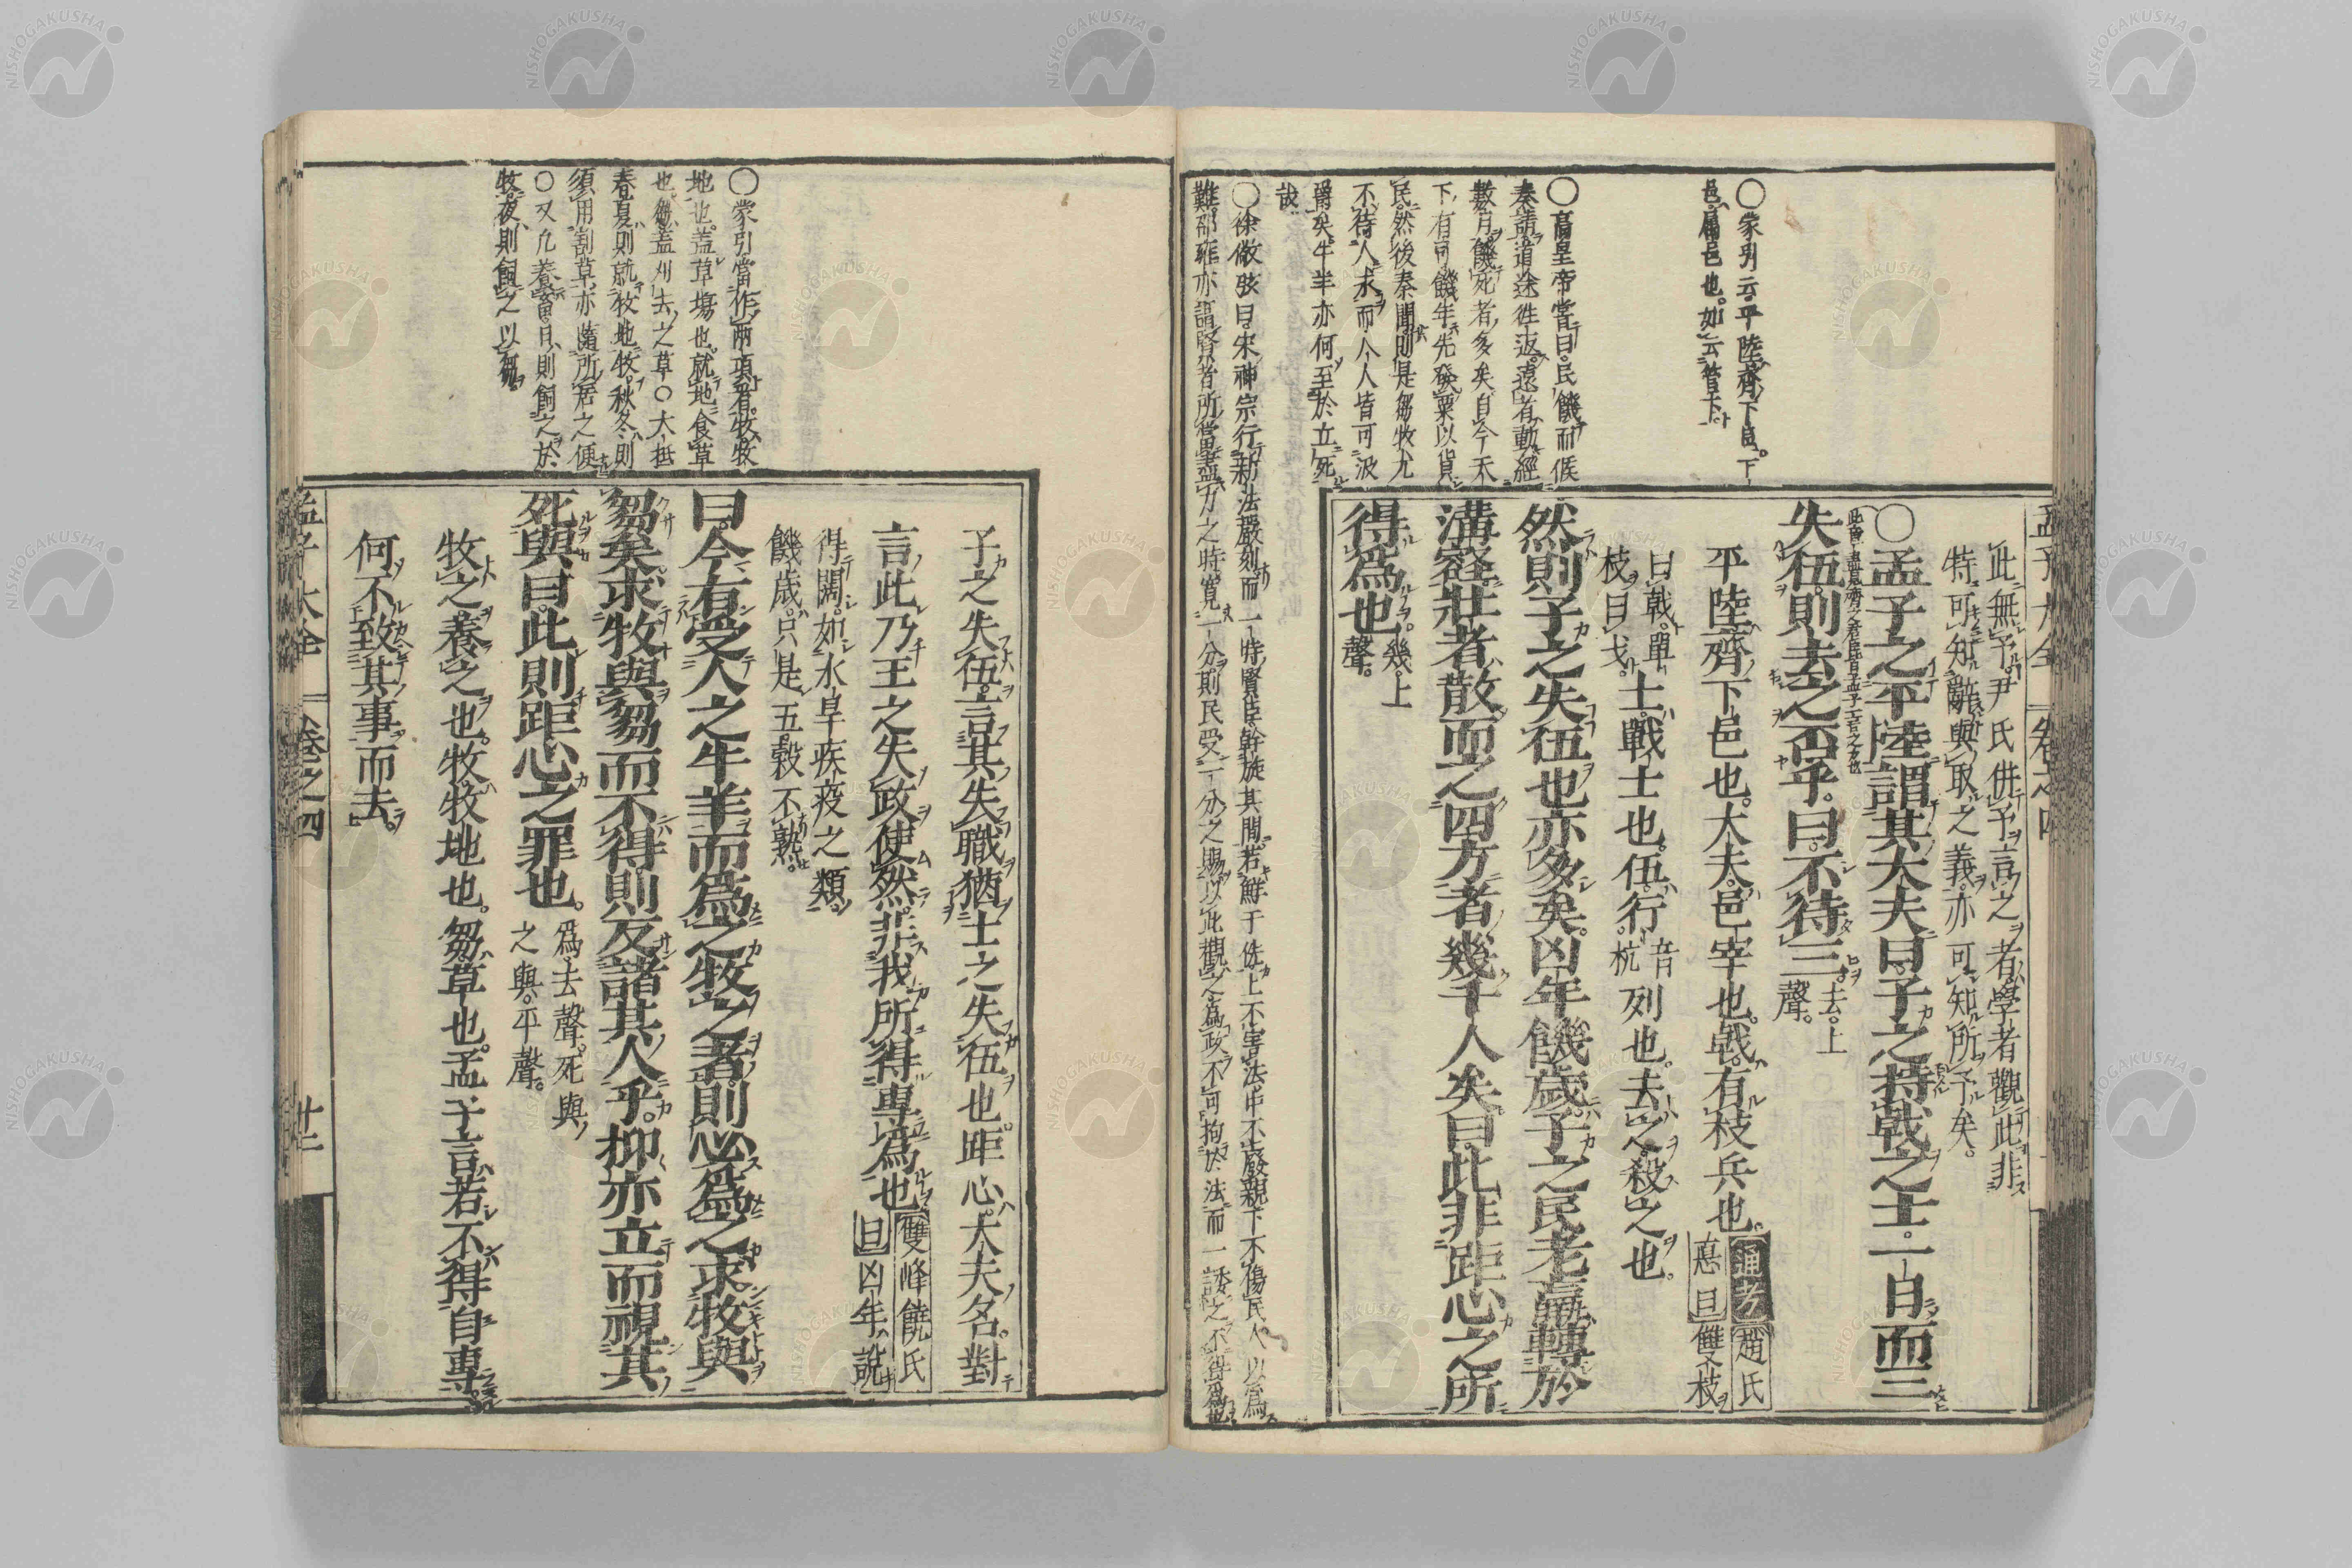 孟子大全 卷之四
此無予。尹氏併予言之者。學者觀此。非
特可知辭與取之義。亦可知所予矣。
○孟子之平陸。謂其大夫曰。子之持戟之士。一日而三
失伍。則去之否乎。曰。不待三。去。上聲。
平陸。齊下邑也。大夫。邑宰也。戟。有枝兵也。通考趙氏悳曰雙枝
曰戟。單枝曰戈。士。戰士也。伍。行音杭列也。去之。殺之也。
然則子之失伍也亦多矣。凶年饑歲。子之民。老羸轉於
溝壑。壯者散而之四方者。幾千人矣。曰。此非距心之所
得爲也。幾。上聲。
○蒙引云。平陸。齊下邑。下
邑。屬邑也。如云管下。
○高皇帝嘗曰。民饑而候
奏請。道途往返。遠者動經
數月。饑死者多矣。自今天
下有司。饑年先發粟以貸
民。然後奏聞。則是芻牧尤
不待人求。而人人皆可波
爵矣。牛羊亦何至於立死
哉。
○徐儆弦曰。宋神宗行新法嚴刻。而一時賢臣。幹旋其間。若鮮于侁。上不害法。中不廢親。下不傷民。人以爲
難。邵雍亦謂賢者所當盡力之時。寬一分則民受一分之賜。以此觀之。爲政不可拘於法。而一諉之不得爲也
子之失伍。言其失職。猶士之失伍也。距心。大夫名。對
言此乃王之失政使然。非我所得專爲也。雙峰饒氏曰凶年。說
得闊。如水旱疾疫之類。
饑歲。只是五穀不熟。
曰。今有受人之牛羊而爲之牧之者。則必爲之求牧與
芻矣。求牧與芻而不得。則反諸其人乎。抑亦立而視其
死與。曰。此則距心之罪也。爲。去聲。死與之與。平聲。
牧之。養之也。牧。牧地也。芻。草也。孟子言若不得自專。
何不致其事而去。
○蒙引。當作兩項看。牧。牧
地也。盖草場也。就地食草
也。芻。盖刈去之草○大抵
春夏則就牧地牧。秋冬則
須用割草。亦隨所居之便
○又凡養畜。日則飼之於
牧。夜則飼之以芻。
孟子大全 卷之四 廿二